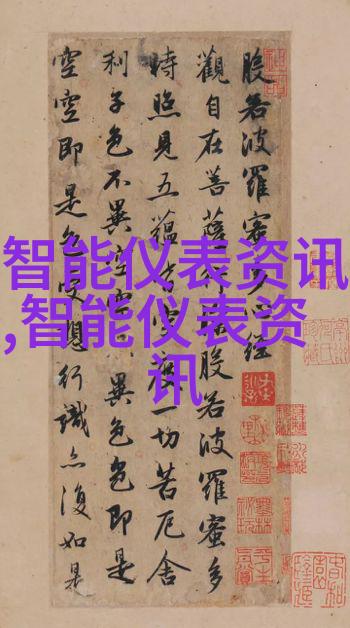 般若波羅蜜多心經
觀自在菩薩行深般若波羅蜜多
時照見五蘊皆空度一切苦厄舍
利子色不異空空不異色色即是
空空即是色受想行識亦復如是
智能仪表资讯
,智能仪表资
讯